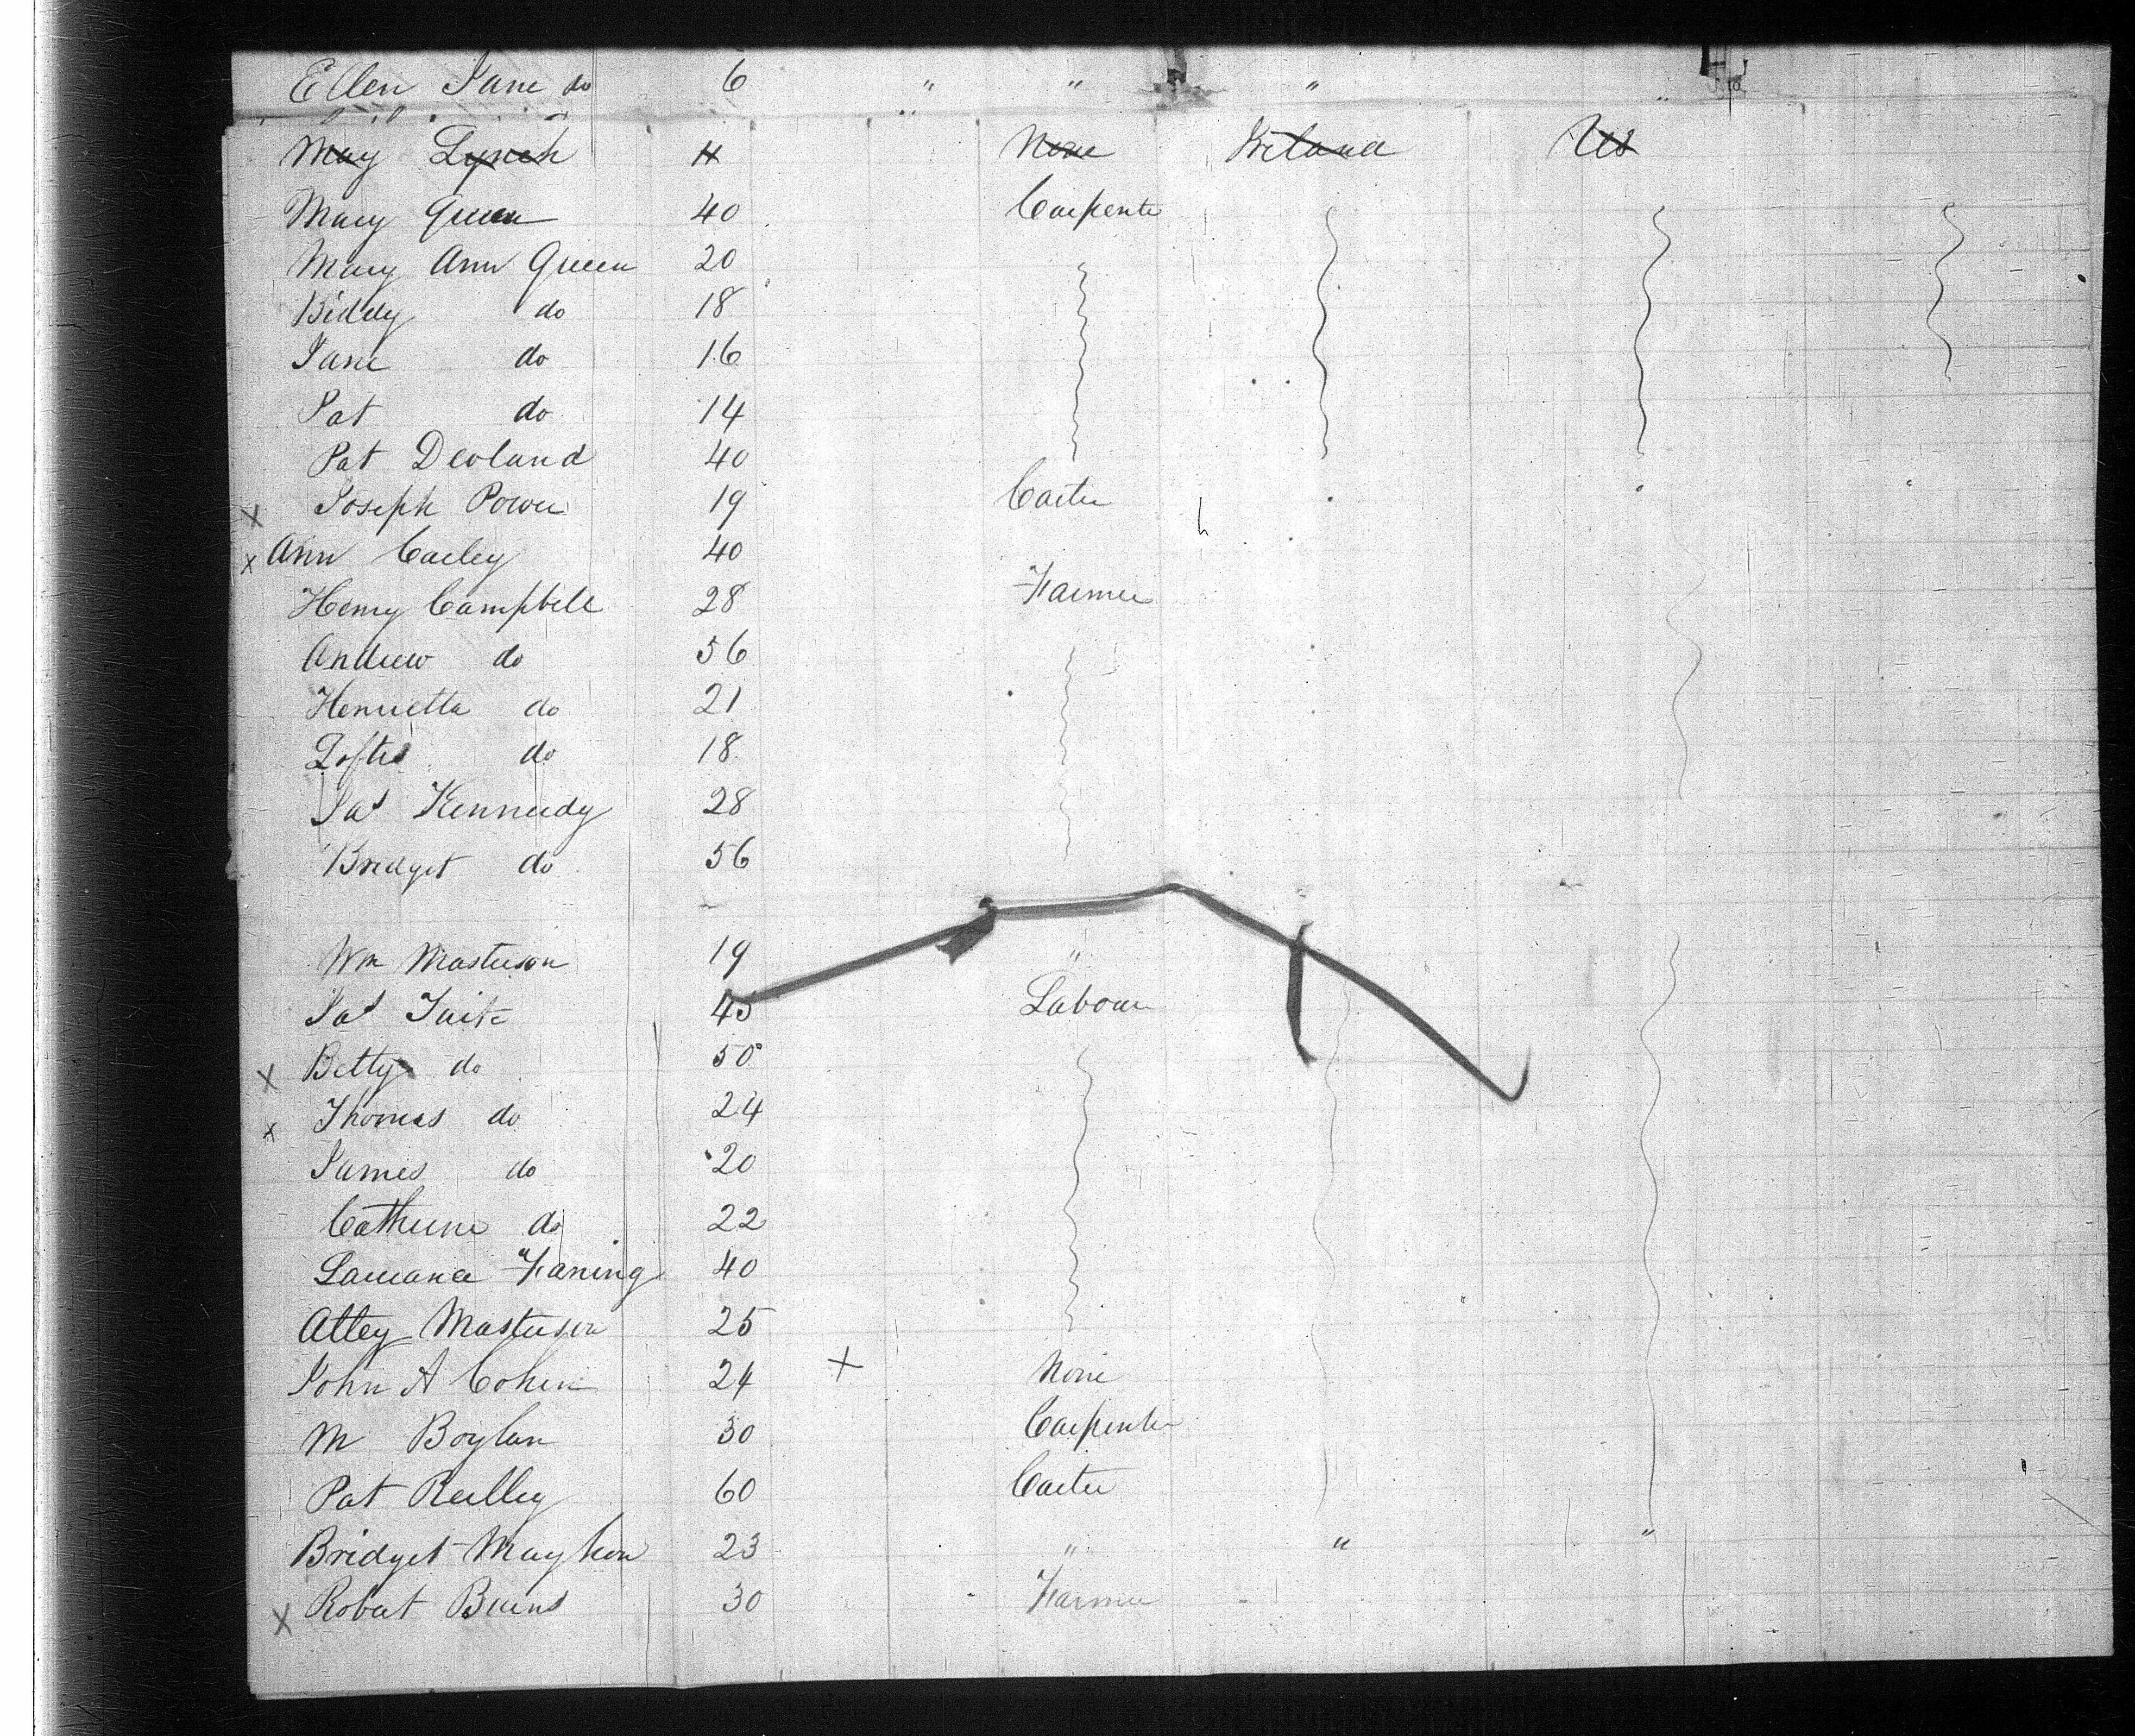 Ellen Jane do 6 " " " "
May Lynch 11 None Ireland US
Mary Green 40 Carpenter
Mary Ann Green 20
Biddy do 18
Jane do 16
Pat do 14
Pat Devland 40
x Joseph Power 19 Carter
x Ann Carley 40
Henry Campbell 28 Farmer
Andrew do 56
Henrietta do 21
do 18
Pat Kennedy 28
Bridget do 56
Wm Masterson 19 "
Pat Tuite 45 Labour
x Betty do 50
x Thomas do 24
James do 20
Catherine do 22
Laurance Faning 40
Attey Masterson 25
John A Cohen 24 x None
M Boylan 30 Carpenter
Pat Reilley 60 Carter
Bridget Mayhon 23 " " "
x Robert Burns 30 Farmer